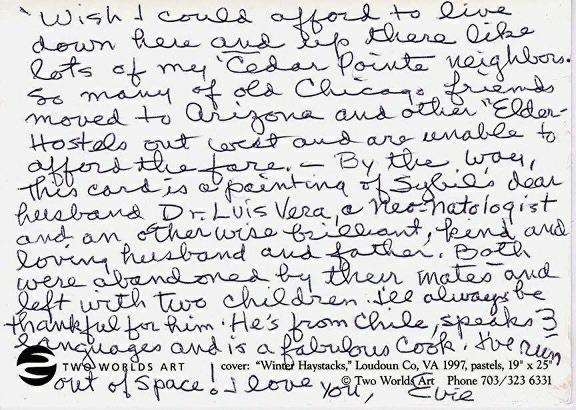 "Wish I could afford to live
down here and up there like
lots of my Cedar Pointe neighbors.
So many of old Chicago friends
moved to Arizona and other "Elder-
Hostels out west and are unable to
afford the fare. — By the way,
this card is a painting of Sybil's dear
husband Dr. Luis Vera, a Neo-natologist
and an otherwise brilliant, kind and
loving husband and father. Both
were abandoned by their mates and
left with two children. I'll always be
thankful for him. He's from Chile, speaks 3
languages and is a fabulous cook. I've run
TWO WORLDS ART cover: "Winter Haystacks," Loudoun Co, VA 1997, pastels, 19" x 25"
out of space! I love you, Evie
© Two Worlds Art Phone 703/323 6331